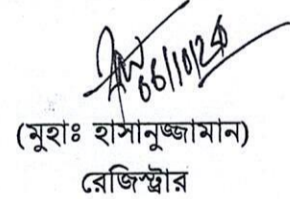 06/10/20
(মুহাঃ হাসানুজ্জামান)
রেজিস্ট্রার